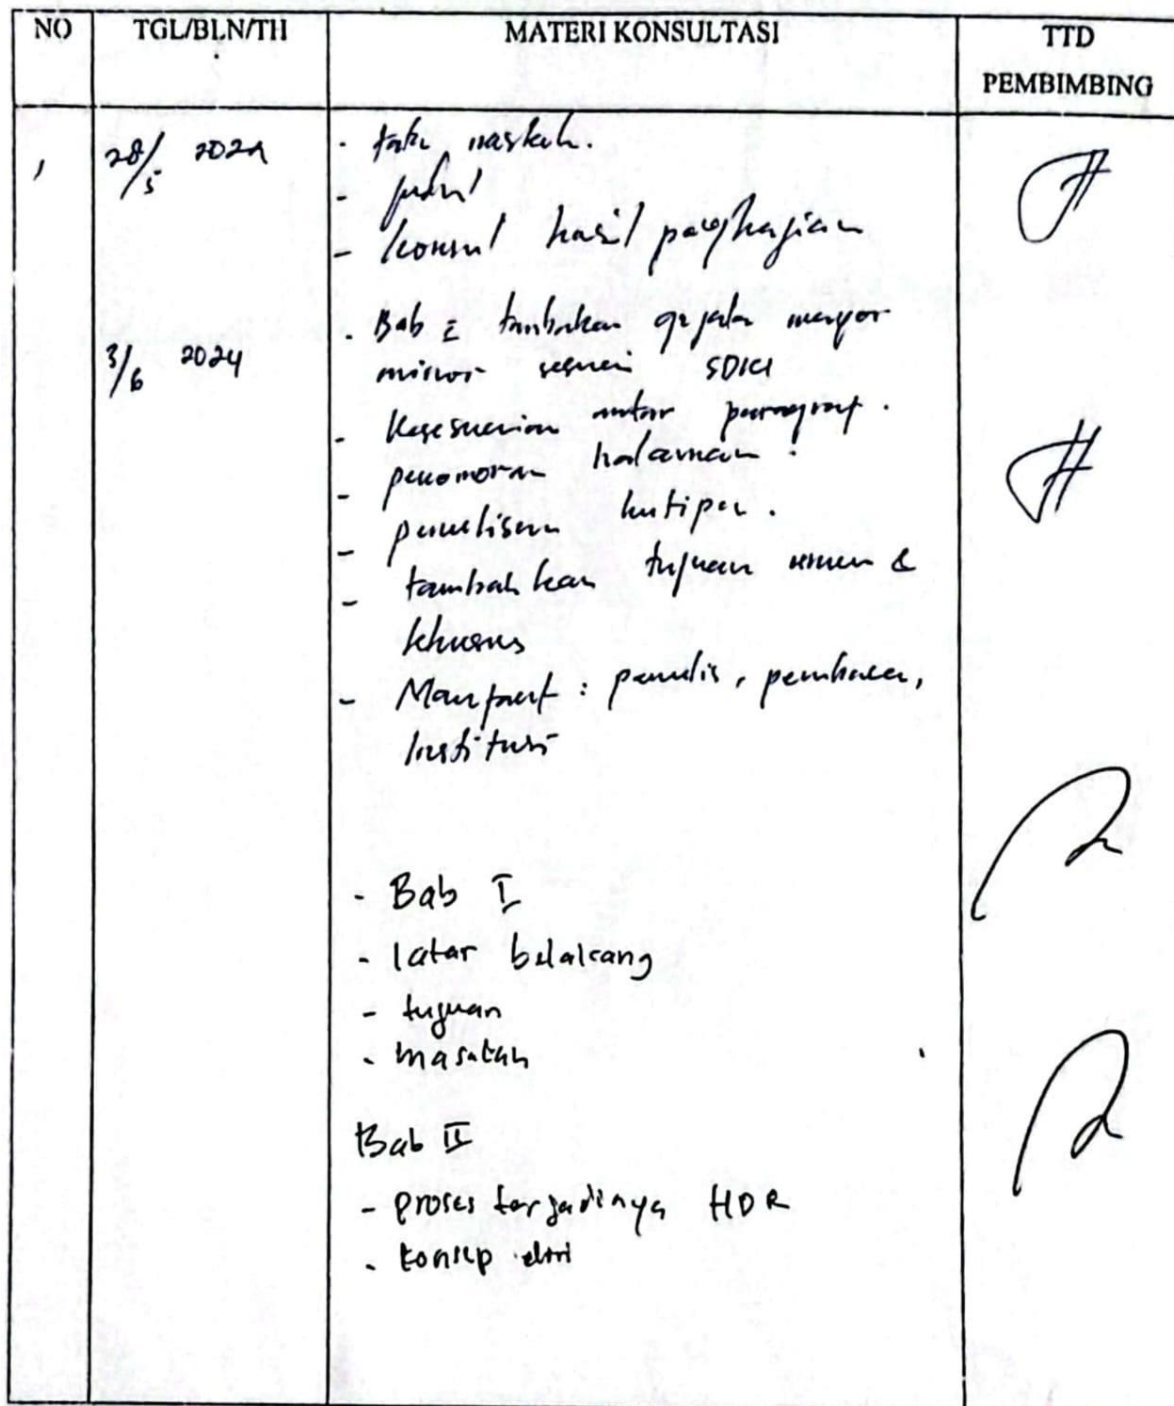 NO TGL/BLN/TH MATERI KONSULTASI TTD
PEMBIMBING
1 28/5 2024 - naskah.
- judul
- konsul hasil pengkajian
3/6 2024 - Bab I tambahkan gejala mayor
minor sesuai SDKI
- Kesesuaian antar paragraf.
- penomoran halaman.
- penulisan kutipan.
- tambahkan tujuan umum &
khusus
- Manfaat : penulis, pembaca,
Institusi
- Bab I
- latar belakang
- tujuan
- masalah
Bab II
- proses terjadinya HDR
- konsep diri